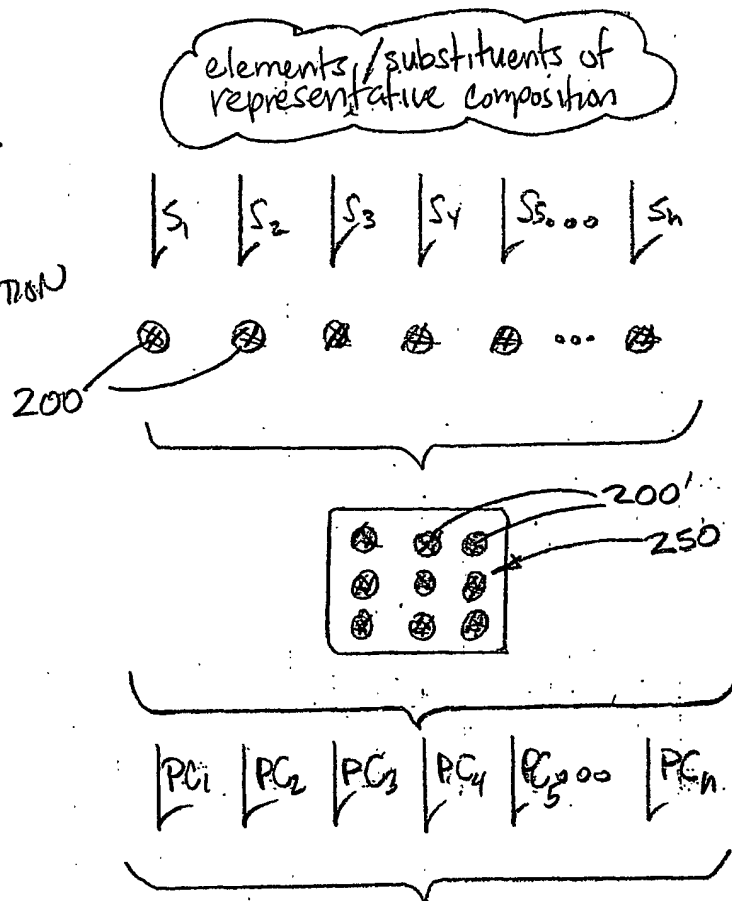 elements/substituents of
representative composition
S1 S2 S3 S4 S5... Sn
...
200
200'
250
PC1 PC2 PC3 PC4 PC5... PCn